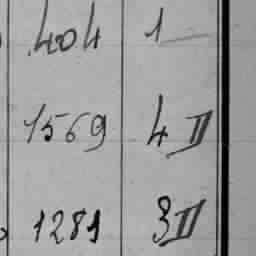 404 1
1569 4 II
1281 3 II